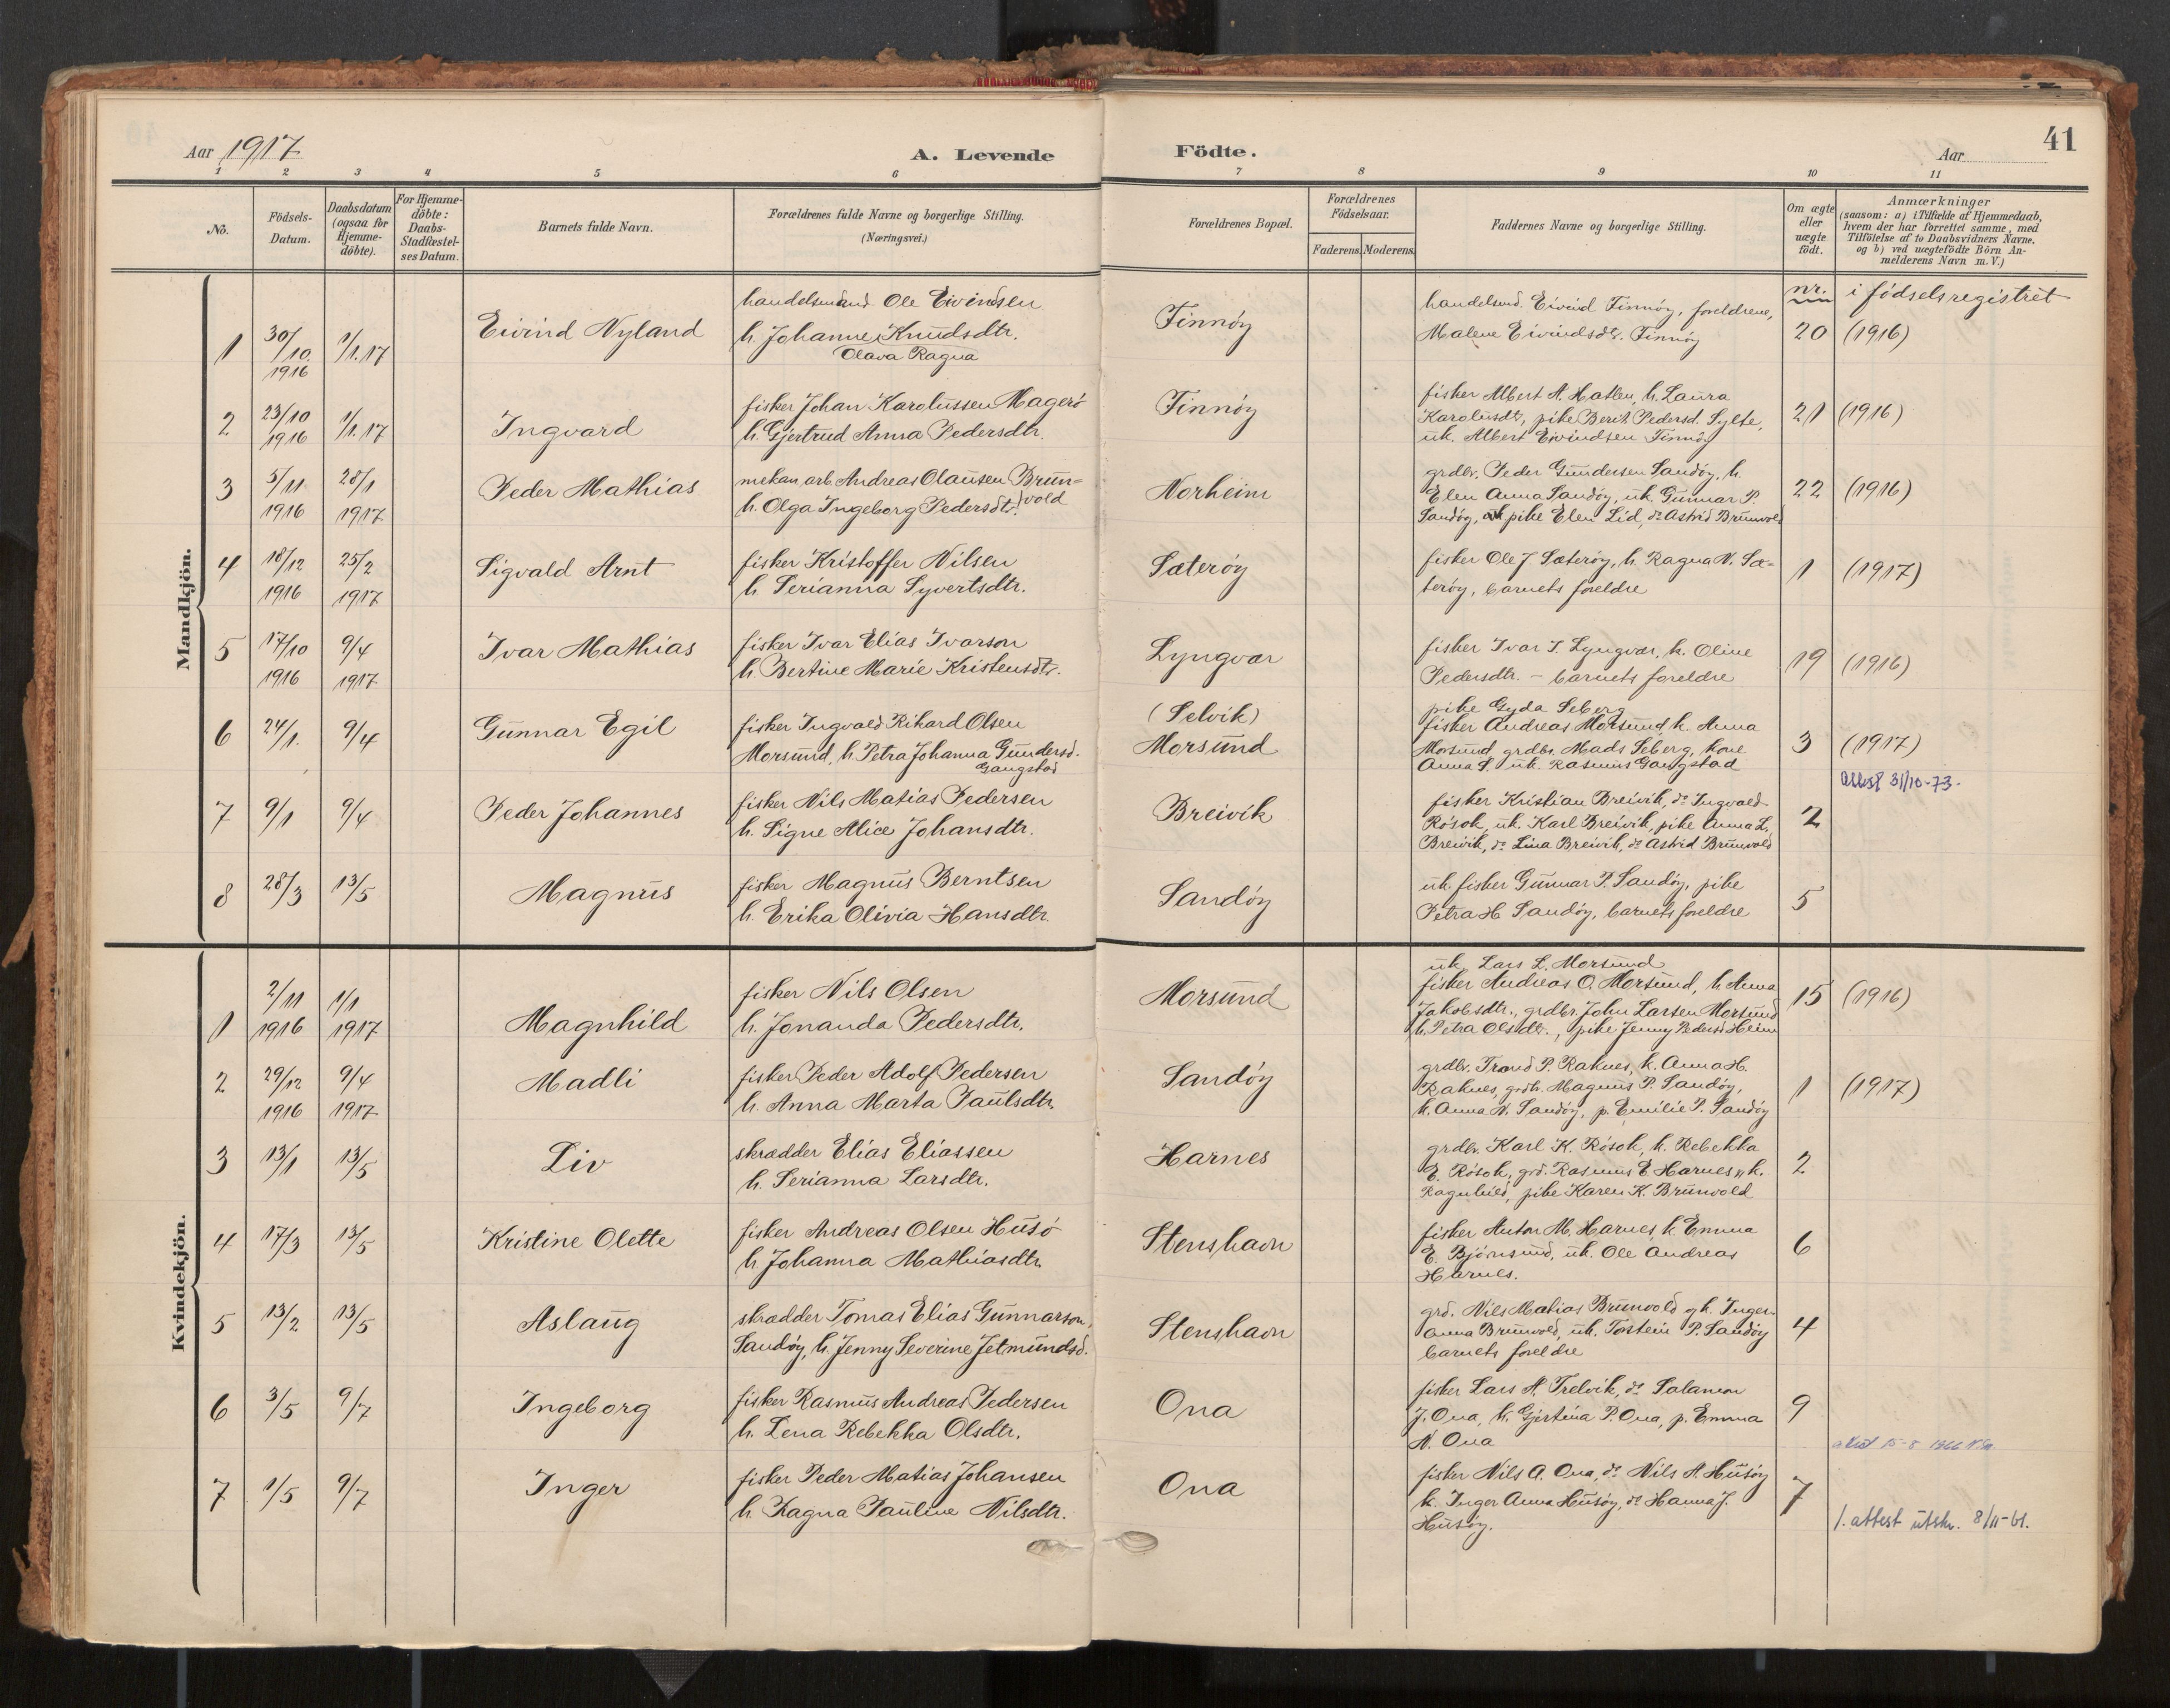 41
Aar 1917 A. Levende Födte. Aar
1 2 3 4 5 6 7 8 9 10 11
No.
Födsels-
Datum.
Daabsdatum
(ogsaa for
Hjemme-
döbte).
For Hjemme-
döbte:
Daabs-
Stadfæstel-
ses Datum.
Barnets fulde Navn.
Forældrenes fulde Navne og borgerlige Stilling.
(Næringsvei.)
Forældrenes Bopæl.
Forældrenes
Födselsaar.
Faderens. Moderens.
Faddernes Navne og borgerlige Stilling.
Om ægte
eller
uægte
födt.
Anmærkninger
(saasom: a) i Tilfælde af Hjemmedaab,
hvem der har forrettet samme, med
Tilföielse af to Daabsvidners Navne.
og b) ved uægtefödte Börn An-
melderens Navn m. V.)
nr. i födselsregistret
Mandkjön.
1
30/10.
1916
1/1.17
Eivind Nyland
handelsmand Ole Eivindsen
h. Johanne Knudsdtr.
Olava Ragna
Finnöy
handelsmd. Eivind Finnöy, foreldrene,
Malene Eivindsdtr. Finnöy
20 (1916)
2
23/10
1916
1/1.17
Ingvard
fisker Johan Karolussen Magerö
h. Gjertrud Anna Pedersdtr.
Finnöy
fisker Albert A. Hatlen, h. Laura
Karolusdtr, pike Berit Pedersd. Sylte,
uk. Albert Eivindsen Finnöy
21 (1916)
3
5/11
1916
28/1
1917
Peder Mathias
mekan. arb. Andreas Olausen Brun=
h. Olga Ingeborg Pedersdtr. vold
Norheim
grdbr. Peder Gundersen Sandöy, h.
Elen Anna Sandöy, uk. Gunnar P.
Sandöy, pike Elen Lid, do Astrid Brunvold
22 (1916)
4
18/12
1916
25/2
1917
Sigvald Arnt
fisker Kristoffer Nilsen
h. Serianna Syvertsdtr.
Sæteröy
fisker Ole J. Sæteröy, h. Ragna N. Sæ-
teröy, barnets foreldre
1 (1917)
5
17/10
1916
9/4
1917
Ivar Mathias
fisker Ivar Elias Ivarson
h. Bertine Marie Kristensdtr.
Lyngvær
fisker Ivar I. Lyngvær, h. Oline
Pedersdtr. – barnets foreldre
19 (1916)
6
24/1.
9/4
Gunnar Egil
fisker Ingvald Rikard Olsen
Morsund, h. Petra Johanna Gundersd.
Gangstad
(Selvik)
Morsund
pike Gyda Seberg
fisker Andreas Morsund, h. Anna
Morsund, grdbr. Mads Seberg, kone
Anna S. uk. Rasmus Gangstad
3 (1917)
Attest 31/10-73.
7
9/1
9/4
Peder Johannes
fisker Nils Matias Pedersen
h. Signe Alice Johansdtr.
Breivik
fisker Kristian Breivik, do Ingvald
Rösok, uk. Karl Breivik, pike Anna L.
Breivik, do Lina Breivik, do Astrid Brunvold
2
8
28/3
13/5
Magnus
fisker Magnus Berntsen
h. Erika Olivia Hansdtr.
Sandöy
uk. fisker Gunnar P. Sandöy, pike
Petra H Sandöy, barnets foreldre
5
Kvindekjön.
1
2/11
1916
1/1
1917
Magnhild
fisker Nils Olsen
h. Jonanda Pedersdtr.
Morsund
uk. Lars L. Morsund
fisker Andreas O. Morsund, h. Anna
Jakobsdtr., grdbr. John Larsen Morsund
h. Petra Olsdtr., pike Jenny Pedersd Heim
15 (1916)
2
29/12
1916
9/4
1917
Madli
fisker Peder Adolf Pedersen
h. Anna Marta Paulsdtr.
Sandöy
grdbr. Trond P. Raknes, k. Anna H.
Raknes, grdbr. Magnus P. Sandöy,
h. Anna N. Sandöy, p. Emilie P. Sandöy
1 (1917)
3
13/1
13/5
Liv
skrædder Elias Eliassen
h. Serianna Larsdtr.
Harnes
grdbr. Karl K. Rösok, h. Rebekka
E. Rösok, grd. Rasmus E Harnes, k.
Ragnhild, pike Karen K. Brunvold
2
4
17/3
13/5
Kristine Olette
fisker Andreas Olsen Husö
h. Johanna Mathiasdtr.
Stenshavn
fisker Anton M. Harnes, k. Emma
E. Björnsund, uk. Ole Andreas
Harnes.
6
5
13/2
13/5
Aslaug
skrædder Tomas Elias Gunnarson,
Sandöy, h. Jenny Severine Jetmundsd.
Stenshavn
grd. Nils Matias Brunvold og h. Inger
Anna Brunvold, uk. Torstein P. Sandöy
barnets foreldre
4
6
3/5
9/7
Ingeborg
fisker Rasmus Andreas Pedersen
h. Lena Rebekka Olsdtr.
Ona
fisker Lars A. Trelvik, do Salamon
J. Ona, h. Gjertina P. Ona, p. Emma
N. Ona
9
7
1/5
9/7
Inger
fisker Peder Matias Johansen
h. Ragna Pauline Nilsdtr.
Ona
fisker Nils A. Ona, do Nils A. Husöy
k. Inger Anna Husöy, do Hanna J.
Husöy.
7
1. attest utskr. 8/11-61.